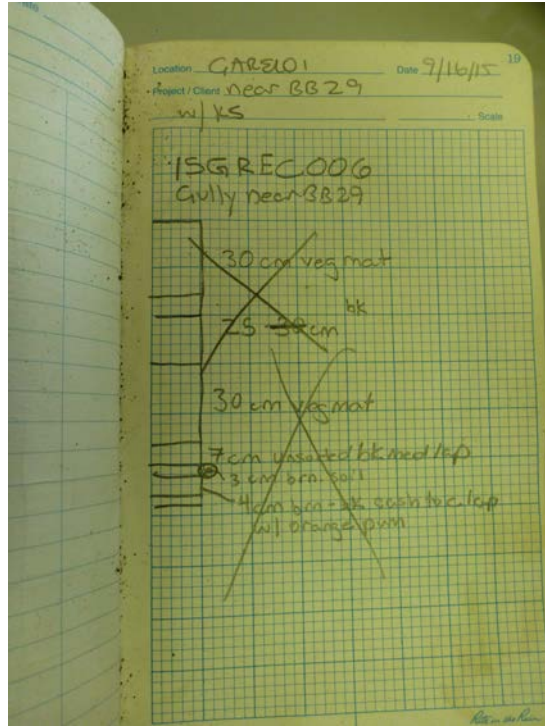 19
Location GARELOI Date 9/16/15
Project / Client near BB29
w/ KS Scale
15GREC006
Gully near BB29
30 cm veg mat
bk
25 30 cm
30 cm veg mat
7 cm unsorted bk med lap
3 cm brn. soil
4 cm brn - bk c. lap
w/ orange pum
Rite in the Rain